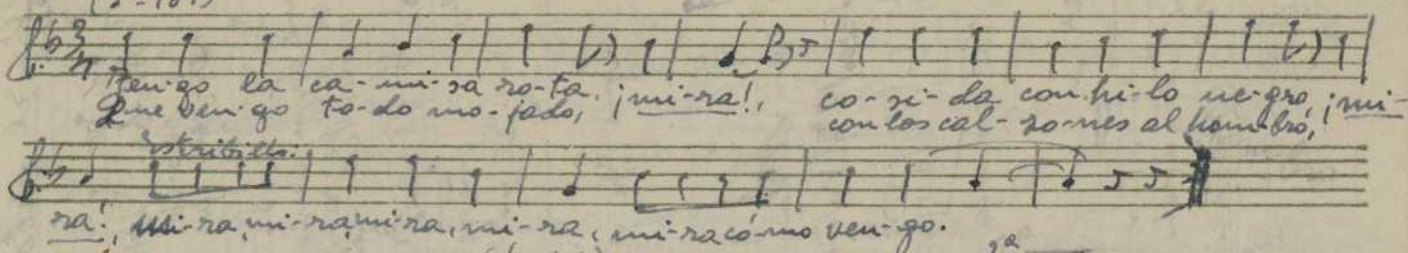 Ten-go la ca-mi-sa ro-ta, ¡mi-ra!, co-si-da con hi-lo ne-gro, ¡mi-
Que ven-go to-do mo-jado, con los cal-zo-nes al hom-bro,
Estribillo:
ra!, mi-ra, mi-ra, mi-ra, mi-ra, mi-ra có-mo ven-go.
2ª